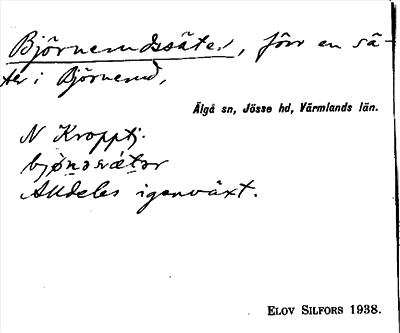 Björnerudssäter, förr en sä-
ter i Björnerud,
Älgå sn, Jösse hd, Värmlands län.
N Kropptj.
Alldeles igenväxt.
ELOV SILFORS 1938.